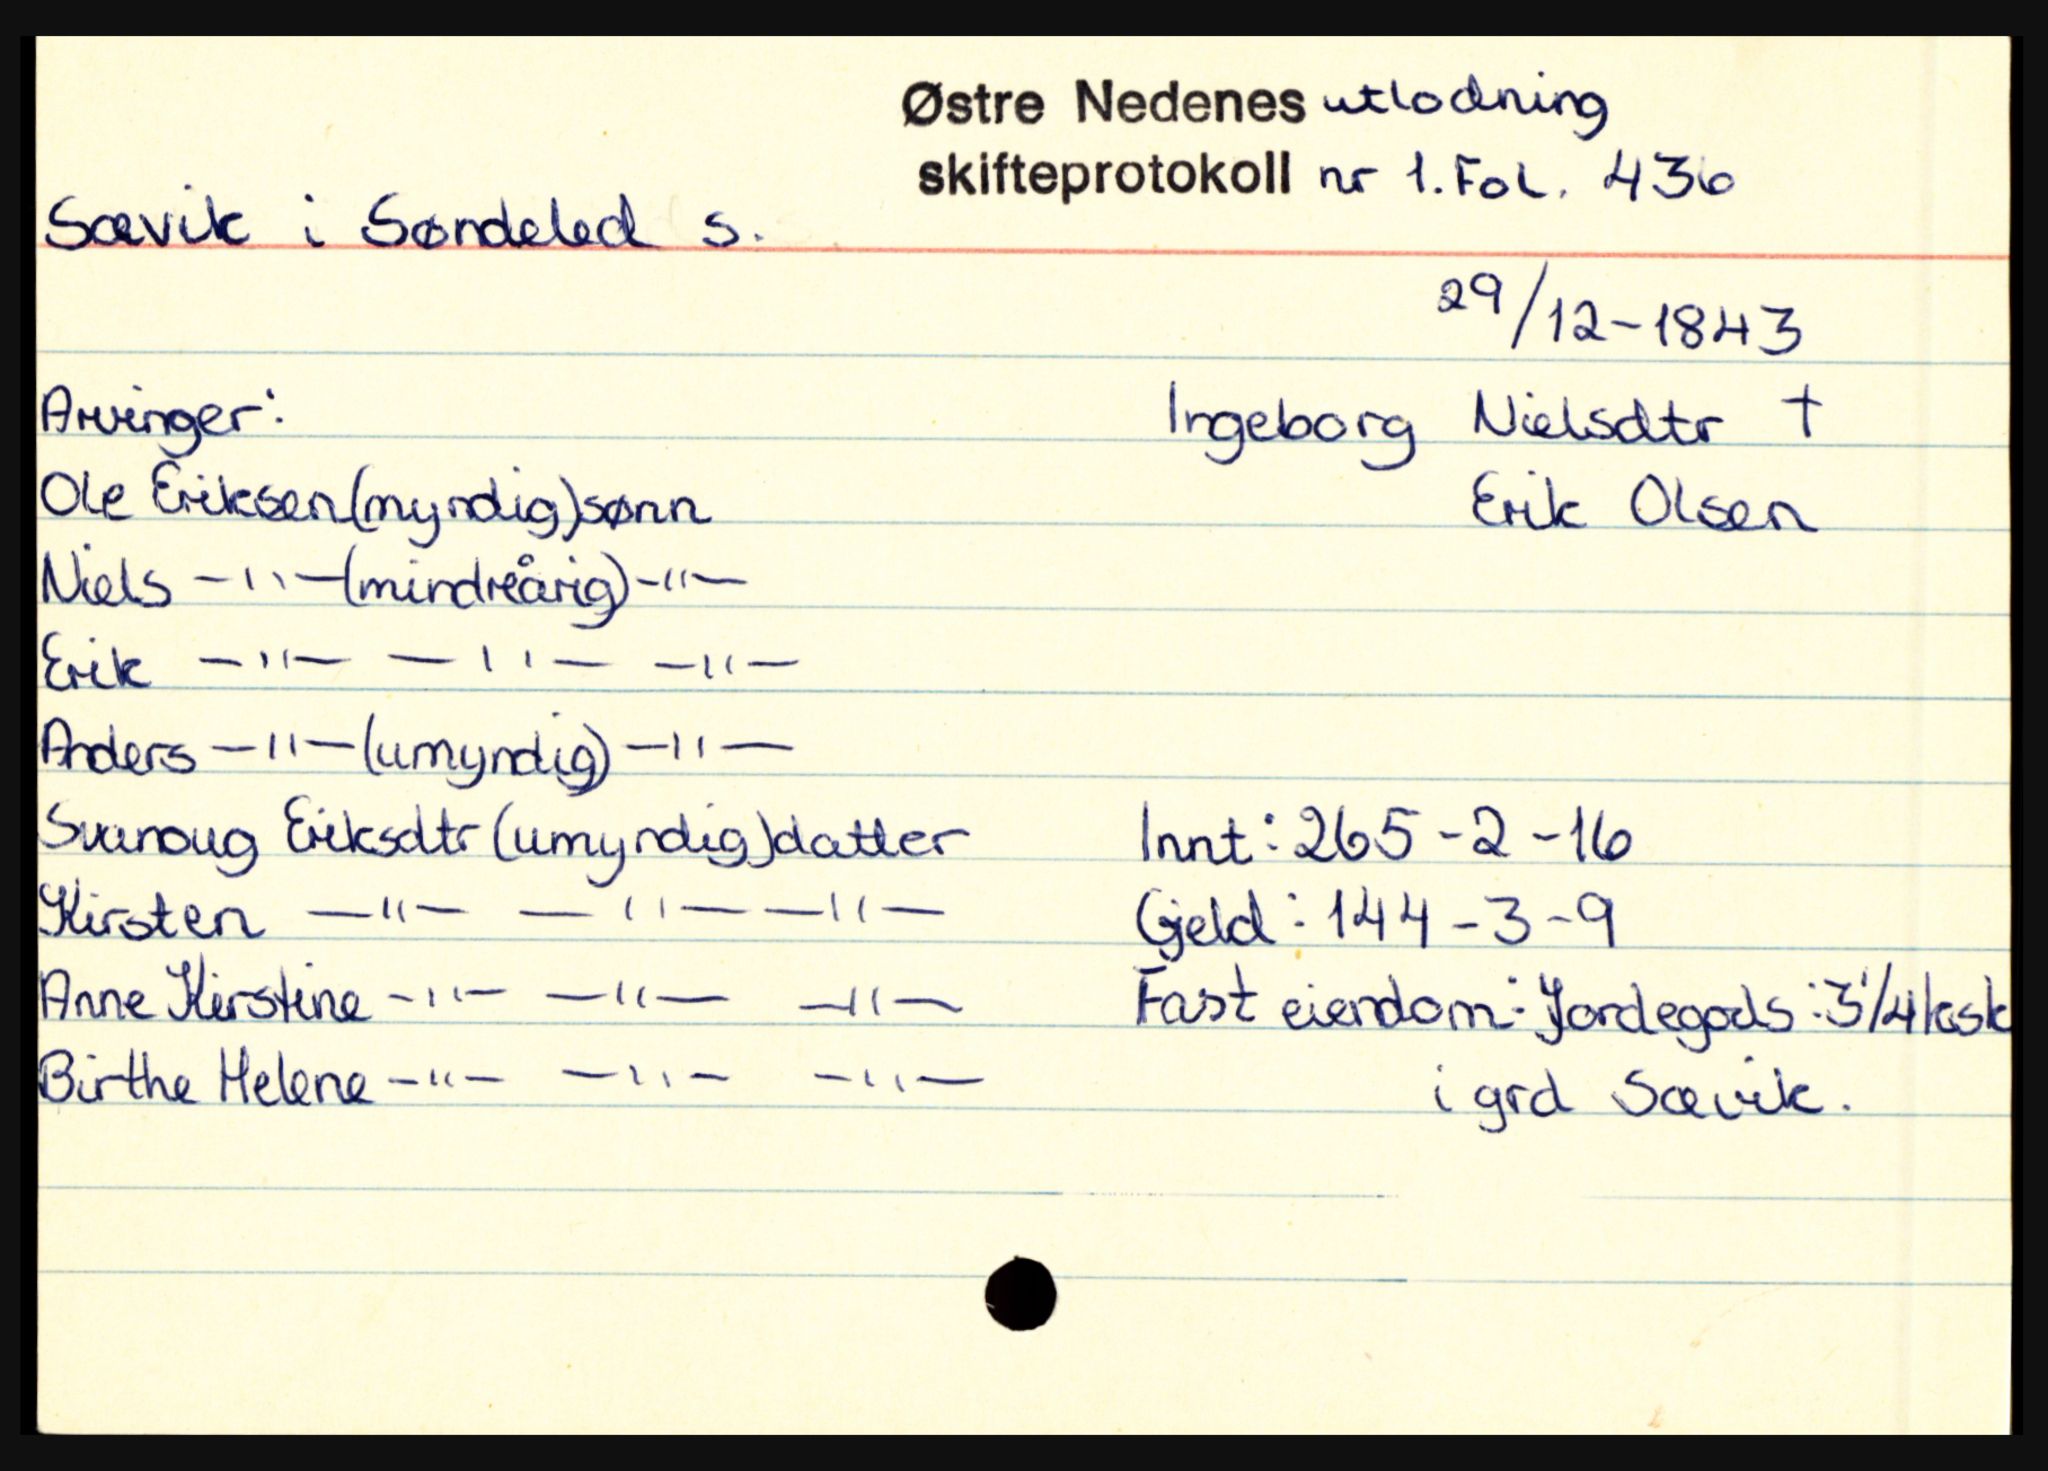 Østre Nedenes utlodning
skifteprotokoll nr 1. Fol. 436
Sævik i Søndeled s.
29/12-1843
Arvinger:
Ingeborg Nielsdtr †
Ole Eriksen (myndig) sønn
Erik Olsen
Niels -"- (mindreårig) -"-
Erik -"- -"- -"-
Anders -"- (umyndig) -"-
Svanoug Eriksdtr (umyndig) datter
Innt: 265-2-16
Kirsten -"- -"- -"-
Gjeld: 144-3-9
Anne Kirstine -"- -"- -"-
Fast eiendom: Jordegods: 3 1/4 kask
Birthe Helene -"- -"- -"-
i grd Sævik.